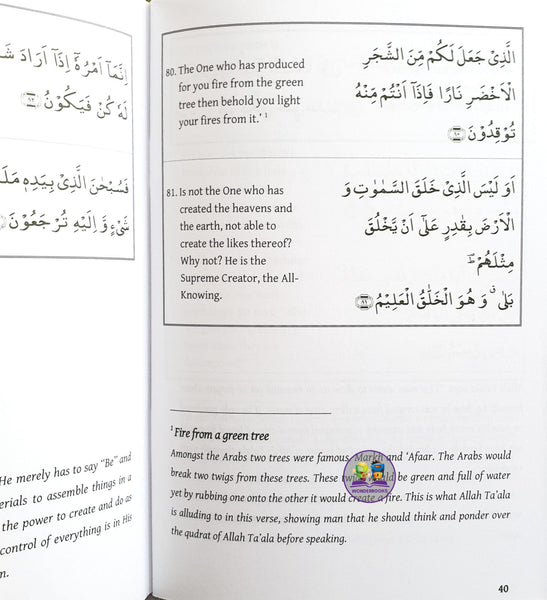 اِنَّمَاۤ اَمْرُهٗۤ اِذَاۤ اَرَادَ
لَهٗ كُنْ فَيَكُوْنُ ﴿۸۲﴾
فَسُبْحٰنَ الَّذِىْ بِيَدِهٖ
شَىْءٍ وَّ اِلَيْهِ تُرْجَعُوْنَ
He merely has to say “Be” and
to assemble things in a
the power to create and do as
control of everything is in His
80. The One who has produced
for you fire from the green
tree then behold you light
your fires from it.’ 1
الَّذِىْ جَعَلَ لَكُمْ مِّنَ الشَّجَرِ
الْاَخْضَرِ نَارًا فَاِذَاۤ اَنْتُمْ مِّنْهُ
تُوْقِدُوْنَ ﴿۸۰﴾
81. Is not the One who has
created the heavens and
the earth, not able to
create the likes thereof?
Why not? He is the
Supreme Creator, the All-
Knowing.
اَوَ لَيْسَ الَّذِىْ خَلَقَ السَّمٰوٰتِ وَ
الْاَرْضَ بِقٰدِرٍ عَلٰۤى اَنْ يَّخْلُقَ
مِثْلَهُمْ ؕ
بَلٰى ۗ وَ هُوَ الْخَلّٰقُ الْعَلِيْمُ ﴿۸۱﴾
1 Fire from a green tree
Amongst the Arabs two trees were famous, Markh and ‘Afaar. The Arabs would
break two twigs from these trees. These twigs would be green and full of water
yet by rubbing one onto the other it would create a fire. This is what Allah Ta’ala
is alluding to in this verse, showing man that he should think and ponder over
the qudrat of Allah Ta’ala before speaking.
WONDERBOOKS
40